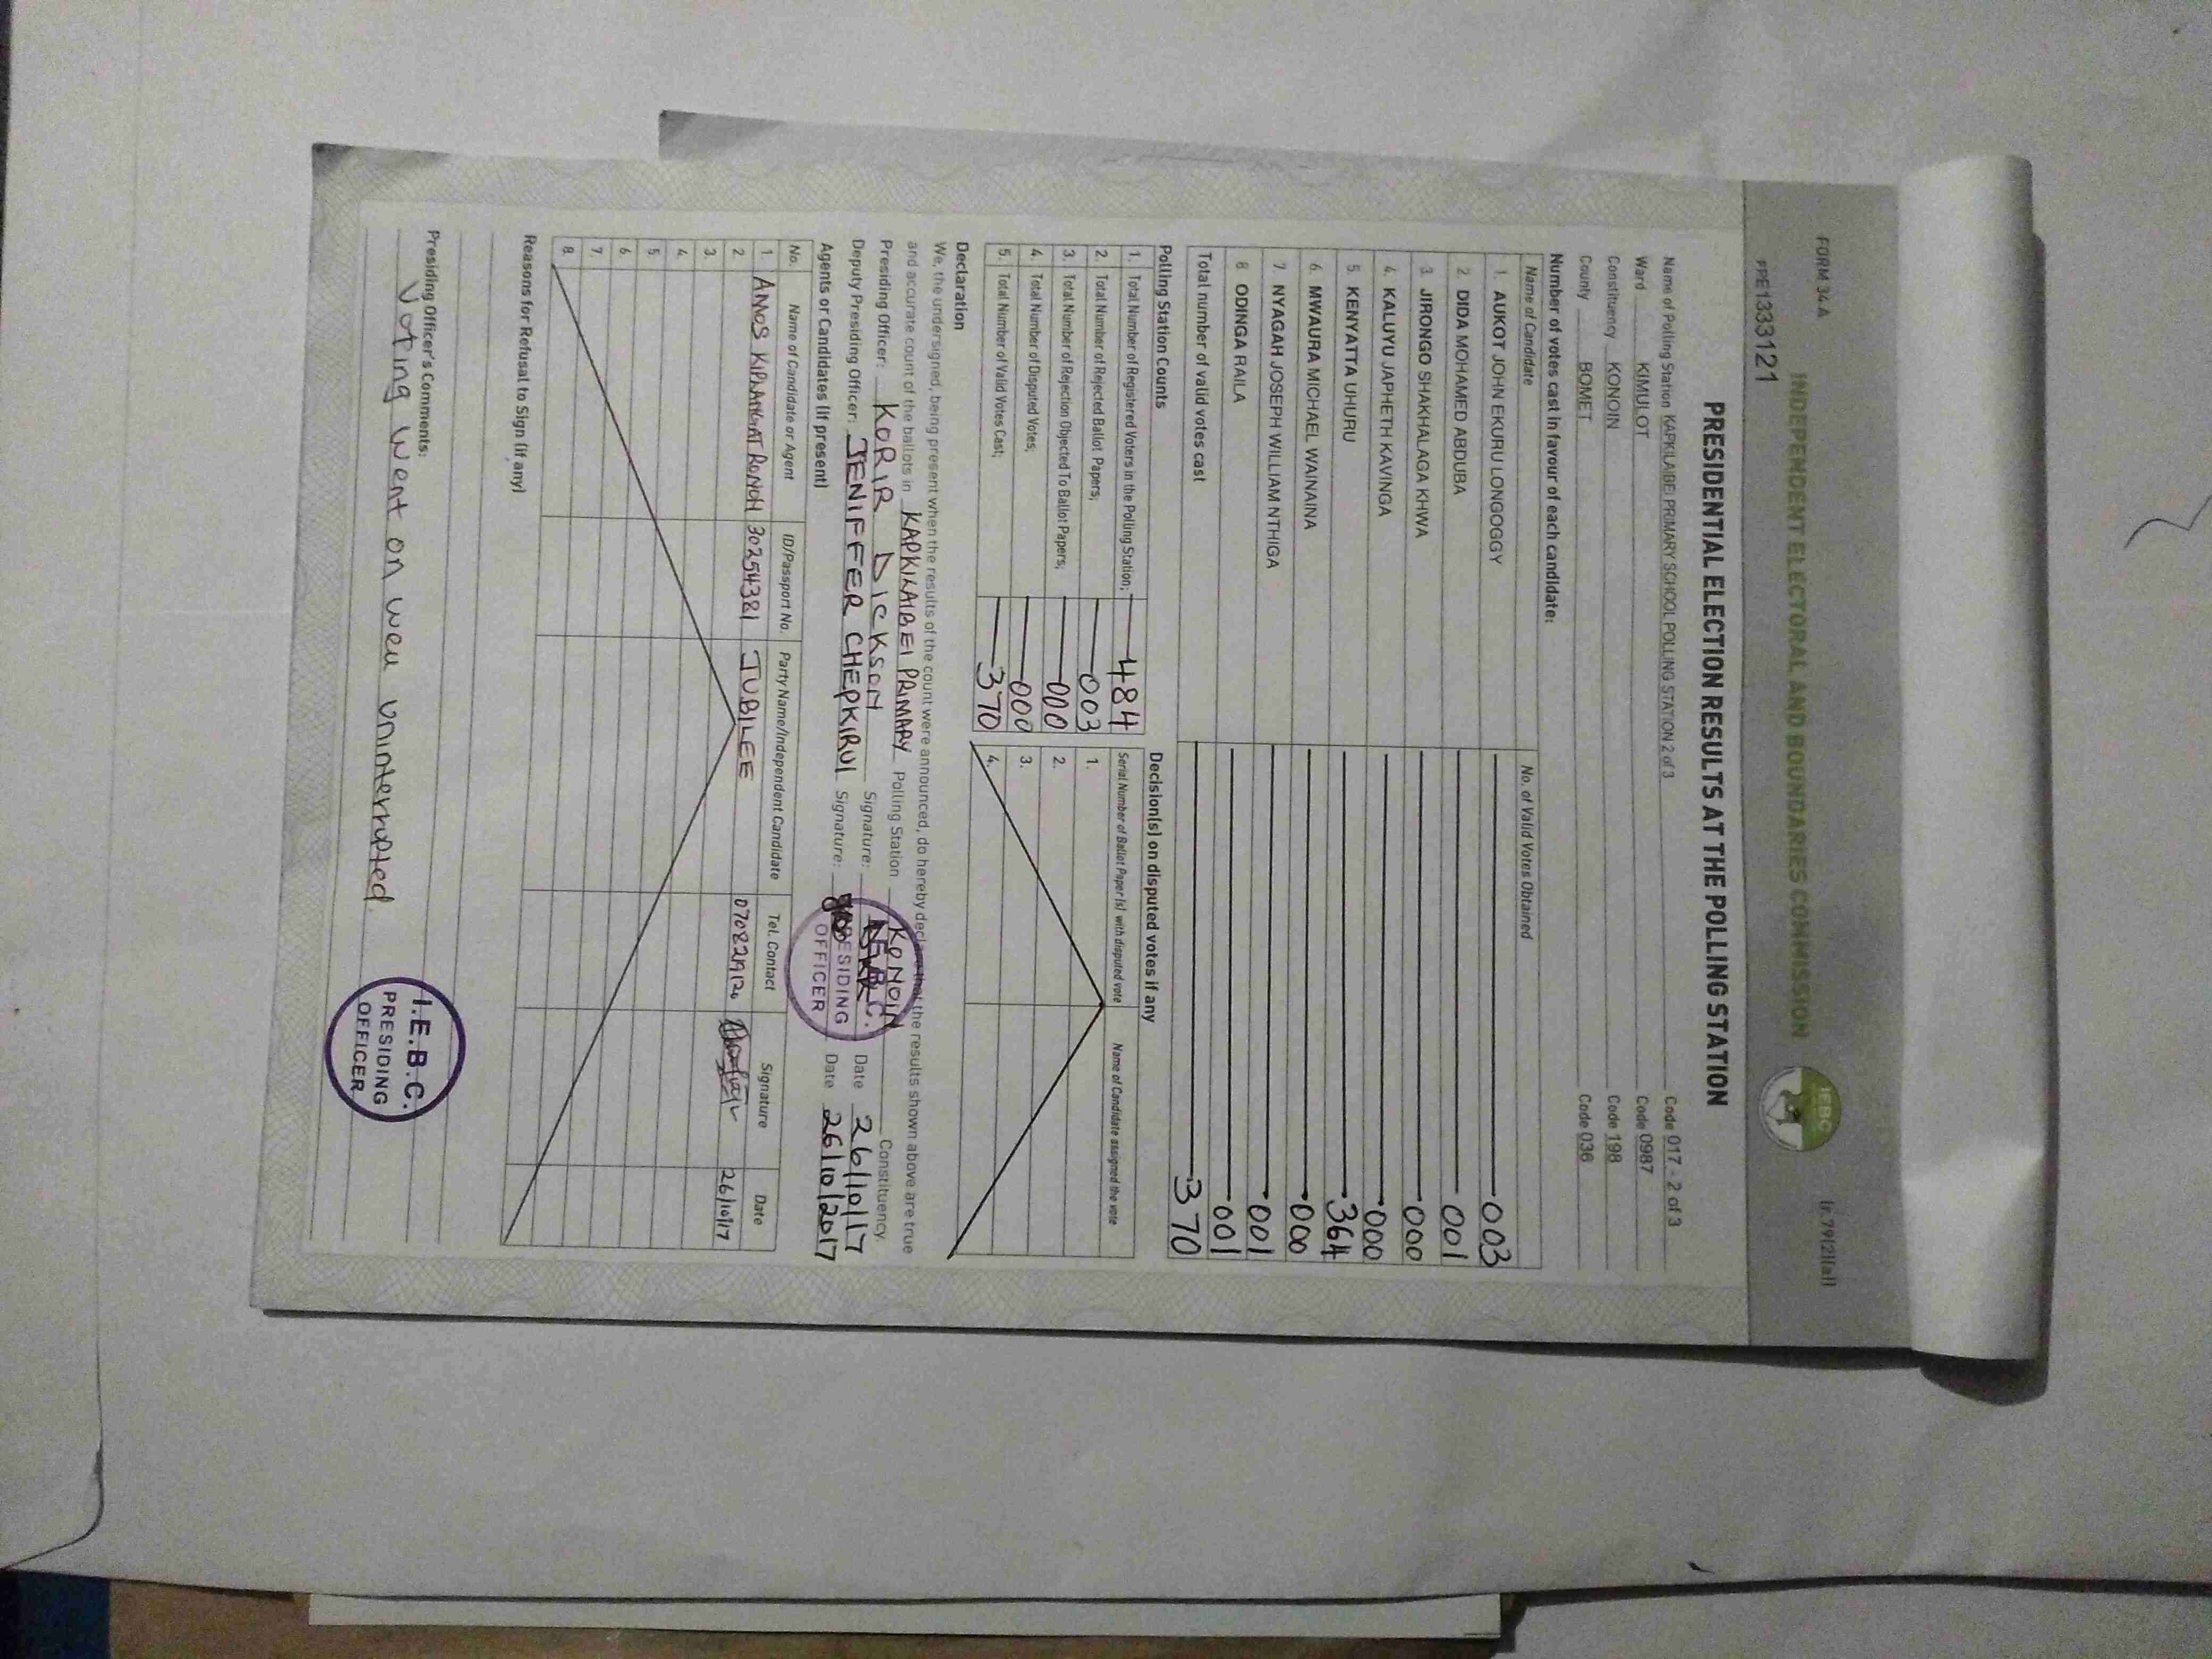 FORM 34A
(r.79(2)(a))
INDEPENDENT ELECTORAL AND BOUNDARIES COMMISSION
IEBC
PPE1333121
PRESIDENTIAL ELECTION RESULTS AT THE POLLING STATION
Name of Polling Station KAPKILAIBEI PRIMARY SCHOOL POLLING STATION 2 of 3 Code 017 - 2 of 3
Ward KIMULOT Code 0987
Constituency KONOIN Code 198
County BOMET Code 036
Number of votes cast in favour of each candidate:
Name of Candidate No. of Valid Votes Obtained
1. AUKOT JOHN EKURU LONGOGGY 003
2. DIDA MOHAMED ABDUBA 001
3. JIRONGO SHAKHALAGA KHWA 000
4. KALUYU JAPHETH KAVINGA 000
5. KENYATTA UHURU 364
6. MWAURA MICHAEL WAINAINA 000
7. NYAGAH JOSEPH WILLIAM NTHIGA 001
8 ODINGA RAILA 001
Total number of valid votes cast 370
Polling Station Counts
1. Total Number of Registered Voters in the Polling Station; 484
2. Total Number of Rejected Ballot Papers; 003
3. Total Number of Rejection Objected To Ballot Papers; 000
4. Total Number of Disputed Votes; 000
5. Total Number of Valid Votes Cast; 370
Decision(s) on disputed votes if any
Serial Number of Ballot Paper(s) with disputed vote Name of Candidate assigned the vote
1.
2.
3.
4.
Declaration
We, the undersigned, being present when the results of the count were announced, do hereby declare that the results shown above are true
and accurate count of the ballots in KAPKILAIBEI PRIMARY Polling Station KONOIN Constituency
Presiding Officer: KORIR DICKSON Signature: Date 26/10/17
Deputy Presiding Officer: JENIFFER CHEPKIRUI Signature: Date 26/10/2017
I.E.B.C.
PRESIDING
OFFICER
Agents or Candidates (if present)
No. Name of Candidate or Agent ID/Passport No. Party Name/Independent Candidate Tel. Contact Signature Date
1 KIPLANGAT 30254381 JUBILEE 26/10/17
2
3.
4.
5
6
7.
8.
Reasons for Refusal to Sign (if any)
Presiding Officer's Comments:
Voting went on well uninterrupted.
I.E.B.C.
PRESIDING
OFFICER